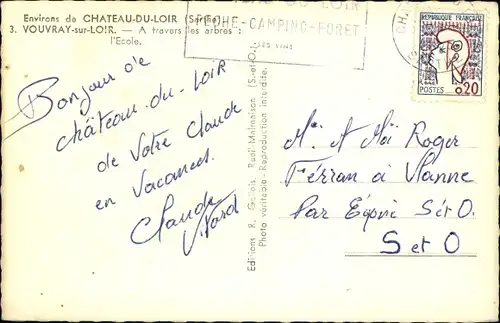 Environs de CHATEAU-DU-LOIR (Sarthe)
3. VOUVRAY-sur-LOIR. — A travers les arbres :
l'Ecole.
PECHE-CAMPING-FORET
SES VINS
REPUBLIQUE FRANÇAISE
POSTES 0,20
Bonjour de
château-du-Loir
de Votre Claude
en Vacances.
Claude
Editions R. Gallois, Rueil-Malmaison (S.-et-O.)
Photo véritable - Reproduction interdite.
Mr. et Roger
Ferran à Vanne
Par S et O.
S et O